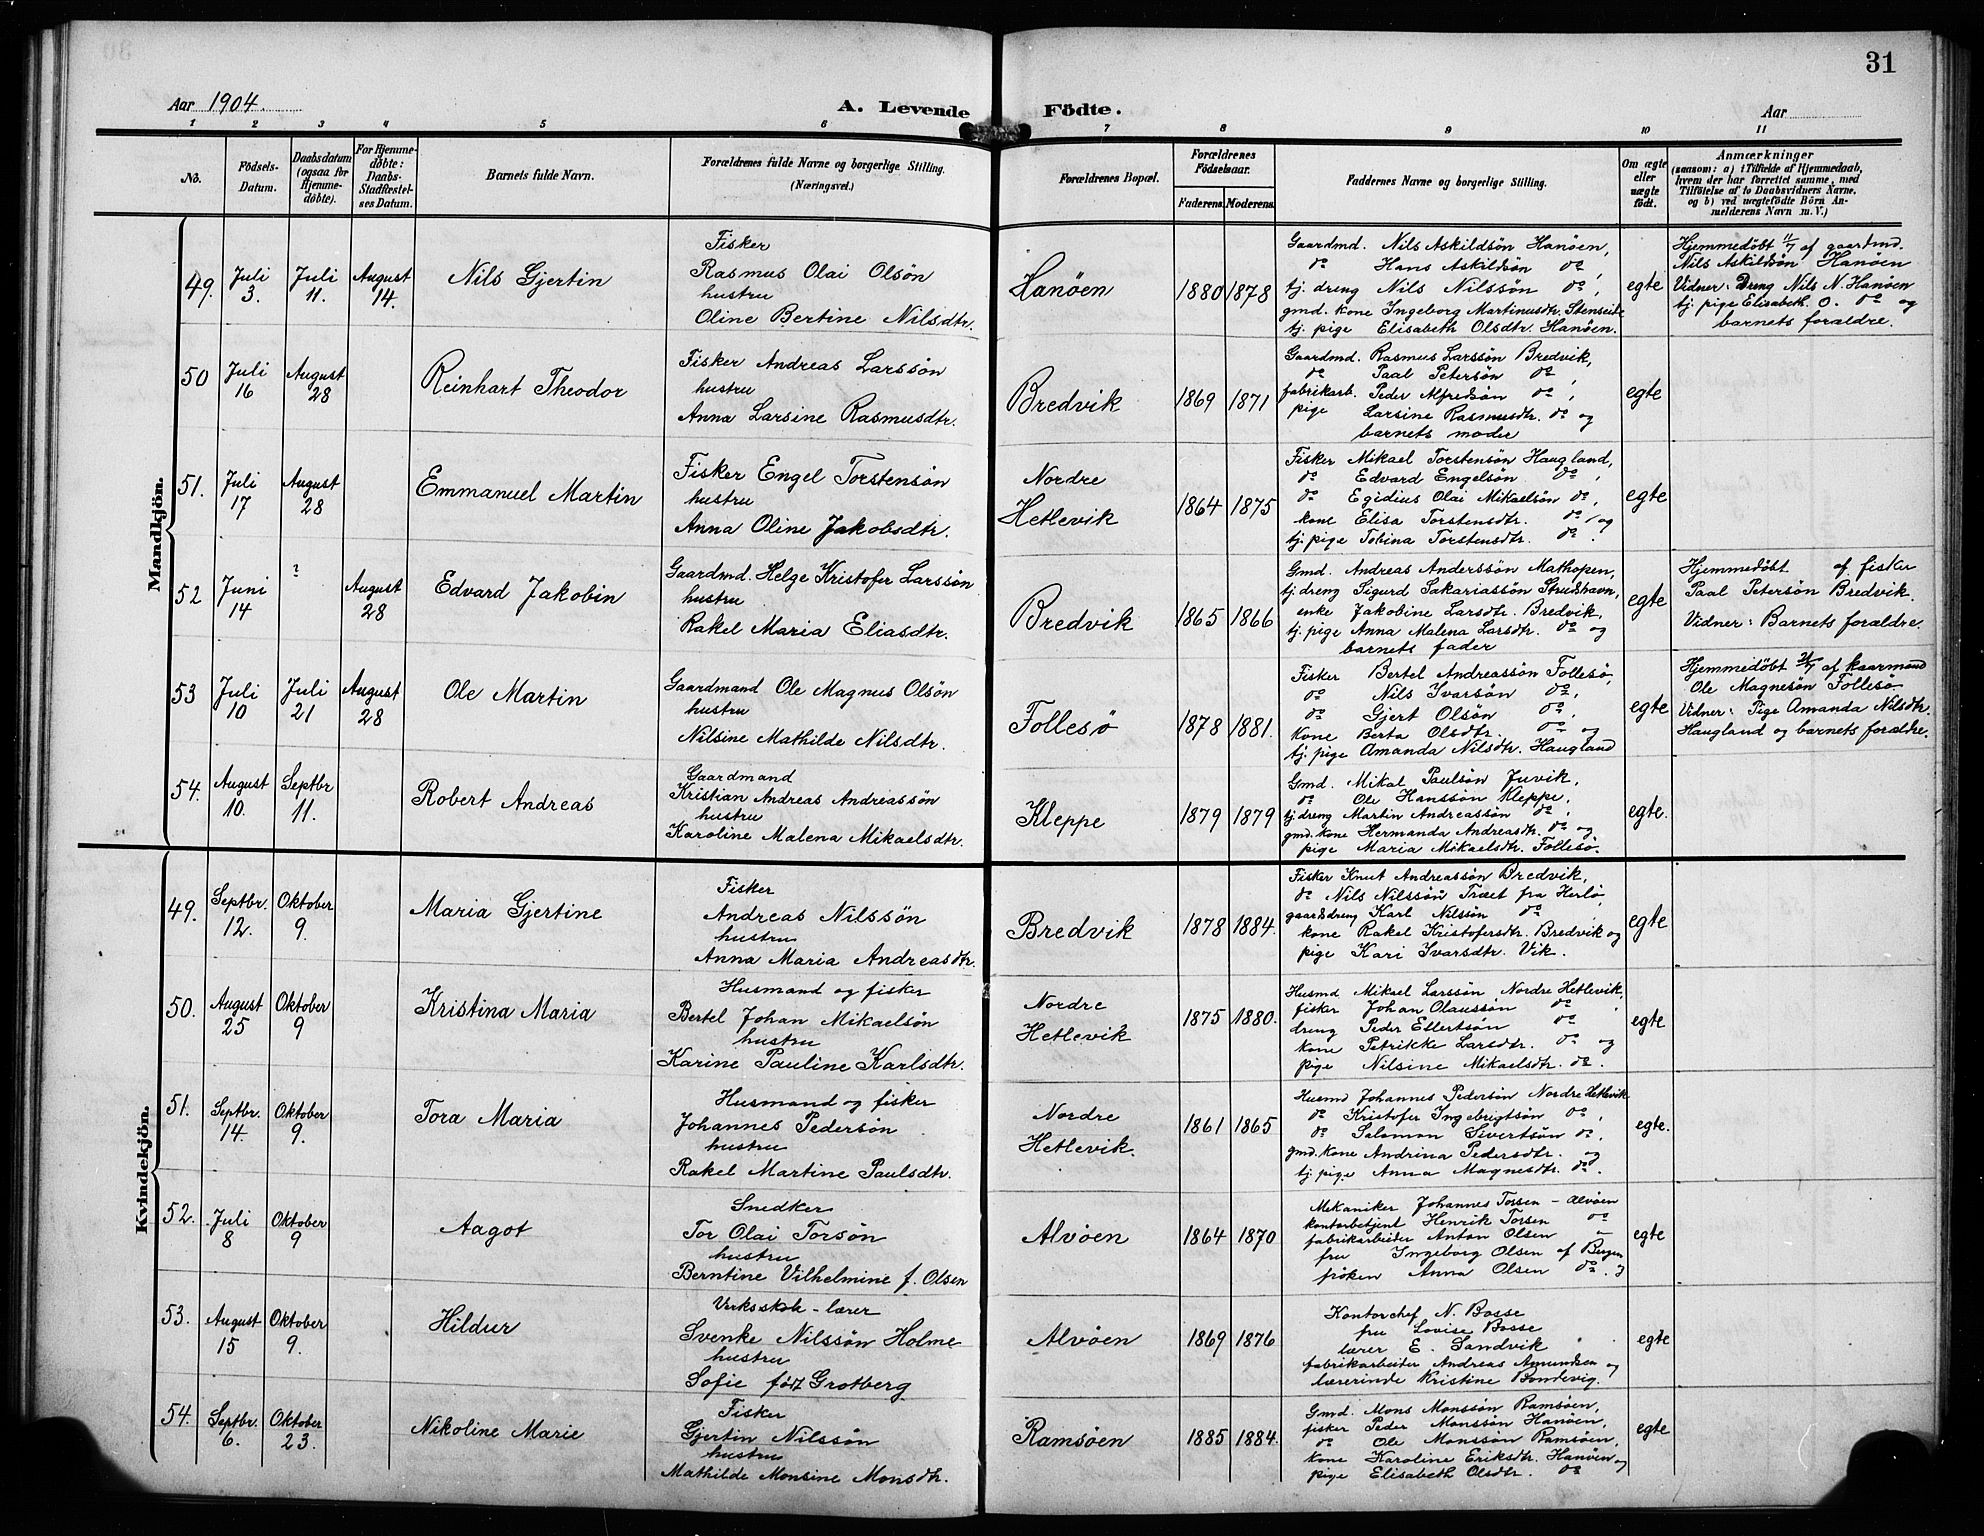 31
Aar 1904.
A. Levende Födte.
Aar
1 2 3 4 5 6 7 8 9 10 11
No.
Födsels-
Datum.
Daabsdatum
(ogsaa for
Hjemme-
døbte).
For Hjemme-
døbte:
Daabs-
Stadfæstel-
ses Datum.
Barnets fulde Navn.
Forældrenes fulde Navne og borgerlige Stilling.
(Næringsvei.)
Forældrenes Bopæl.
Forældrenes
Födselsaar.
Faderens. Moderens.
Faddernes Navne og borgerlige Stilling.
Om ægte
eller
uægte
födt.
Anmærkninger
(saasom: a) i Tilfælde af Hjemmedaab,
hvem der har forrettet samme, med
Tilföielse af to Daabsvidners Navne,
og b) ved uægtefödte Börn An-
melderens Navn m. V.)
Mandkjön.
49.
Juli
3.
Juli
11.
August
14.
Nils Gjertin
Fisker
Rasmus Olai Olsön
hustru
Oline Bertine Nilsdtr.
Hanöen
1880 1878
Gaardmd. Nils Askildsön Hanöen,
do Hans Askildsön do,
tj. dreng Nils Nilssön do,
gmd. kone Ingeborg Martinusdtr. Stenseide
tj. pige Elisabeth Olsdtr. Hanöen.
egte
Hjemmedöbt 11/7 af gaardmd.
Nils Askildsön Hanöen
Vidner: Dreng Nils N. Hanöen
tj. pige Elisabeth O. do og
barnets foraldre.
50
Juli
16
August
28
Reinhart Theodor
Fisker Andreas Larssön
hustru
Anna Larsine Rasmusdtr.
Bredvik
1869 1871
Gaardmd. Rasmus Larssön Bredvik,
do Paal Petersön do,
fabrikarb. Peder Alfredsön do,
pige Larsine Rasmusdtr. do og
barnets moder
egte
51.
Juli
17
August
28
Emmanuel Martin
Fisker Engel Torstensön
hustru
Anna Oline Jakobsdtr.
Nordre
Hetlevik
1864 1875
Fisker Mikael Torstensön Haugland,
do Edvard Engelsön do,
do Egidius Olai Mikaelsön do,
kone Elisa Torstensdtr. do, og
tj. pige Tobina Torstensdtr. do.
egte
52
Juni
14
?
August
28
Edvard Jakobin
Gaardmd. Helge Kristofer Larssön
hustru
Rakel Maria Eliasdtr.
Bredvik
1865 1866
Gmd. Andreas Anderssön Mathopen,
tj dreng Sigurd Sakariassön Strudshavn,
enke Jakobine Larsdtr. Bredvik,
tj. pige Anna Malena Larsdtr. do og
barnets fader
egte
Hjemmedöbt af fisker
Paal Petersön Bredvik.
Vidner: Barnets foraldre.
53
Juli
10
Juli
21
August
28
Ole Martin
Gaardmand Ole Magnus Olsön
hustru
Nilsine Mathilde Nilsdtr.
Follesö
1878 1881.
Fisker Bertel Andreassön Follesö,
do Nils Ivarsön do,
do Gjert Olsön do,
kone Berta Olsdtr. do og
tj. pige Amanda Nilsdtr. Haugland
egte
Hjemmedöbt 21/7 af kaarmand
Ole Magnesön Follesö.
Vidner: Pige Amanda Nilsdtr.
Haugland og barnets foraldre.
54.
August
10.
Septbr
11.
Robert Andreas
Gaardmand
Kristian Andreas Andreassön
hustru
Karoline Malena Mikaelsdtr.
Kleppe
1879 1879
Gmd. Mikal Paulsön Juvik,
do Ole Hanssön Kleppe,
tj dreng Martin Andreassön do,
gmd. kone Hermanda Andreasdtr. do og
pige Maria Mikaelsdtr. Follesö.
egte.
Kvindekjön.
49.
Septbr.
12.
Oktober
9.
Maria Gjertine
Fisker
Andreas Nilssön
hustru
Anna Maria Andreasdtr.
Bredvik
1878 1884.
Fisker Knut Andreassön Bredvik,
do Nils Nilssön Træet fra Herlö,
gaardsdreng Karl Nilsön do,
kone Rakel Kristofersdtr. Bredvik og
pige Kari Ivarsdtr. Vik.
egte
50.
August
25
Oktober
9
Kristina Maria
Husmand og fisker
Bertel Johan Mikaelsön
hustru
Karine Pauline Karlsdtr.
Nordre
Hetlevik
1875 1880.
Husmd Mikael Larssön Nordre Hetlevik,
fisker Johan Olaussön do
dreng Peder Ellertsön do
kone Petrikke Larsdtr. do og
pige Nilsine Mikaelsdtr. do.
egte
51.
Septbr.
14.
Oktober
9.
Tora Maria
Husmand og fisker
Johannes Pedersön
hustru
Rakel Martine Paulsdtr.
Nordre
Hetlevik.
1861 1865
Husmd Johannes Pedersön Nordre Hetlevik
do Kristofer Ingebrigtsön do,
do Salomon Sivertsön do.
gmd. kone Andrina Pedersdtr. og
tj. pige Anna Magnesdtr. do.
egte.
52.
Juli
8
Oktober
9
Aagot
Snedker
Tor Olai Torsön
hustru
Berntine Vilhelmine f. Olsen
Alvöen
1864 1870
Mekaniker Johannes Torsen - Alvöen
kontorbetjent Henrik Torsen do
fabrikarbeider Anton Olsen "
fru Ingeborg Olsen af Bergen
fröken Anna Olsen do.
egte
53.
August
15
Oktober
9.
Hildur
Virksskole-lærer
Svenke Nilssön Holme
hustru
Sofie född Grotberg
Alvöen
1869 1876
Kontorchef N. Bosse
fru Lovise Bosse
lærer E. Sandvik
fabrikarbeider Andreas Amundsen og
lærerinde Kristine Bondevig.
egte
54.
Septbr.
6.
Oktober
23.
Nikoline Marie
Fisker
Gjertin Nilssön
hustru
Mathilde Monsine Monsdtr.
Ramsöen
1885 1884.
Gmd. Mons Monssön Ramsöen,
fisker Peder Monssön Hanöen,
do Ole Monssön Ramsöen,
kone Karoline Eriksdtr. Hanöen og
pige Elisabeth Olsdtr. do
egte